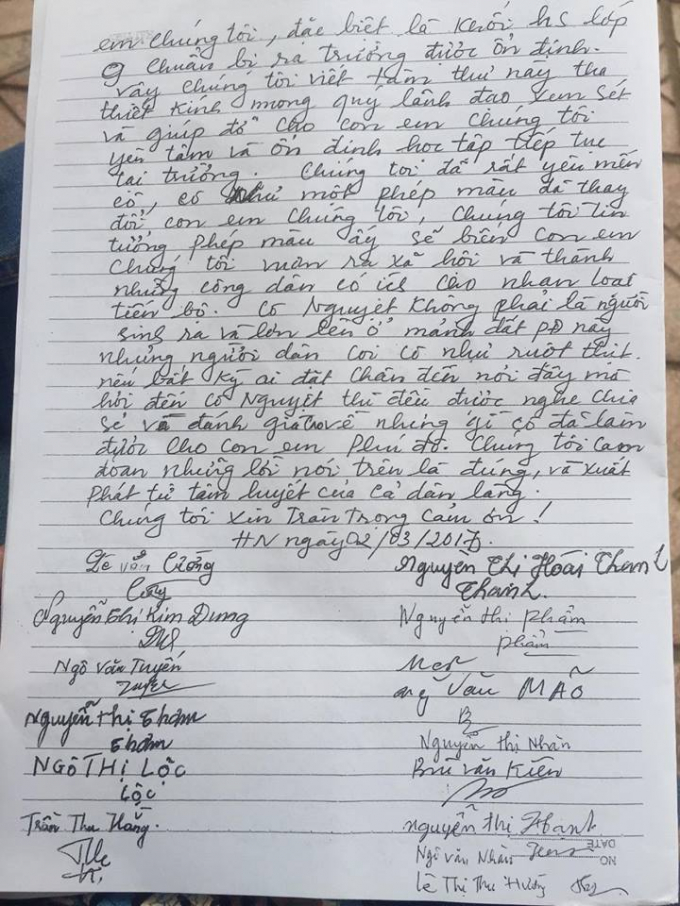 em chúng tôi, đặc biệt là khối hs lớp
9 chuẩn bị ra trường được ổn định.
Vậy chúng tôi viết tâm thư này tha
thiết kính mong quý lãnh đạo xem sét
và giúp đỡ cho con em chúng tôi
yên tâm và ổn định học tập tiếp tục
tại trường. Chúng tôi đã rất yêu mến
cô, cô như một phép màu đã thay
đổi con em chúng tôi, chúng tôi tin
tưởng phép màu ấy sẽ biến con em
chúng tôi vươn ra xã hội và thành
những công dân có ích cho nhân loại
tiến bộ. Cô Nguyệt không phải là người
sinh ra và lớn lên ở mảnh đất PĐ này
nhưng người dân coi cô như ruột thịt.
nếu bất kỳ ai đặt chân đến nơi đây mà
hỏi đến cô Nguyệt thì đều được nghe chia
sẻ và đánh giá về những gì cô đã làm
được cho con em Phú đô. Chúng tôi cam
đoan những lời nói trên là đúng, và xuất
phát từ tâm huyết của cả dân làng.
Chúng tôi xin Trân Trọng Cảm ơn!
HN ngày 02/03/2017
Lê Văn Cường Nguyễn Thị Hoài Thanh
Thanh
Nguyễn Thị Kim Dung Nguyễn thị Phẩm
Phẩm
Ngô Văn Tuyến
Văn MÃO
Nguyễn Thị Thơm
Thơm Nguyễn thị Nhàn
NGÔ THỊ LỘC Bùi Văn Kiên
LỘC
Trần Thu Hằng. Nguyễn Thị Hạnh
Ngô Văn Nhàn
Lê Thị Thu Hường
NO
DATE